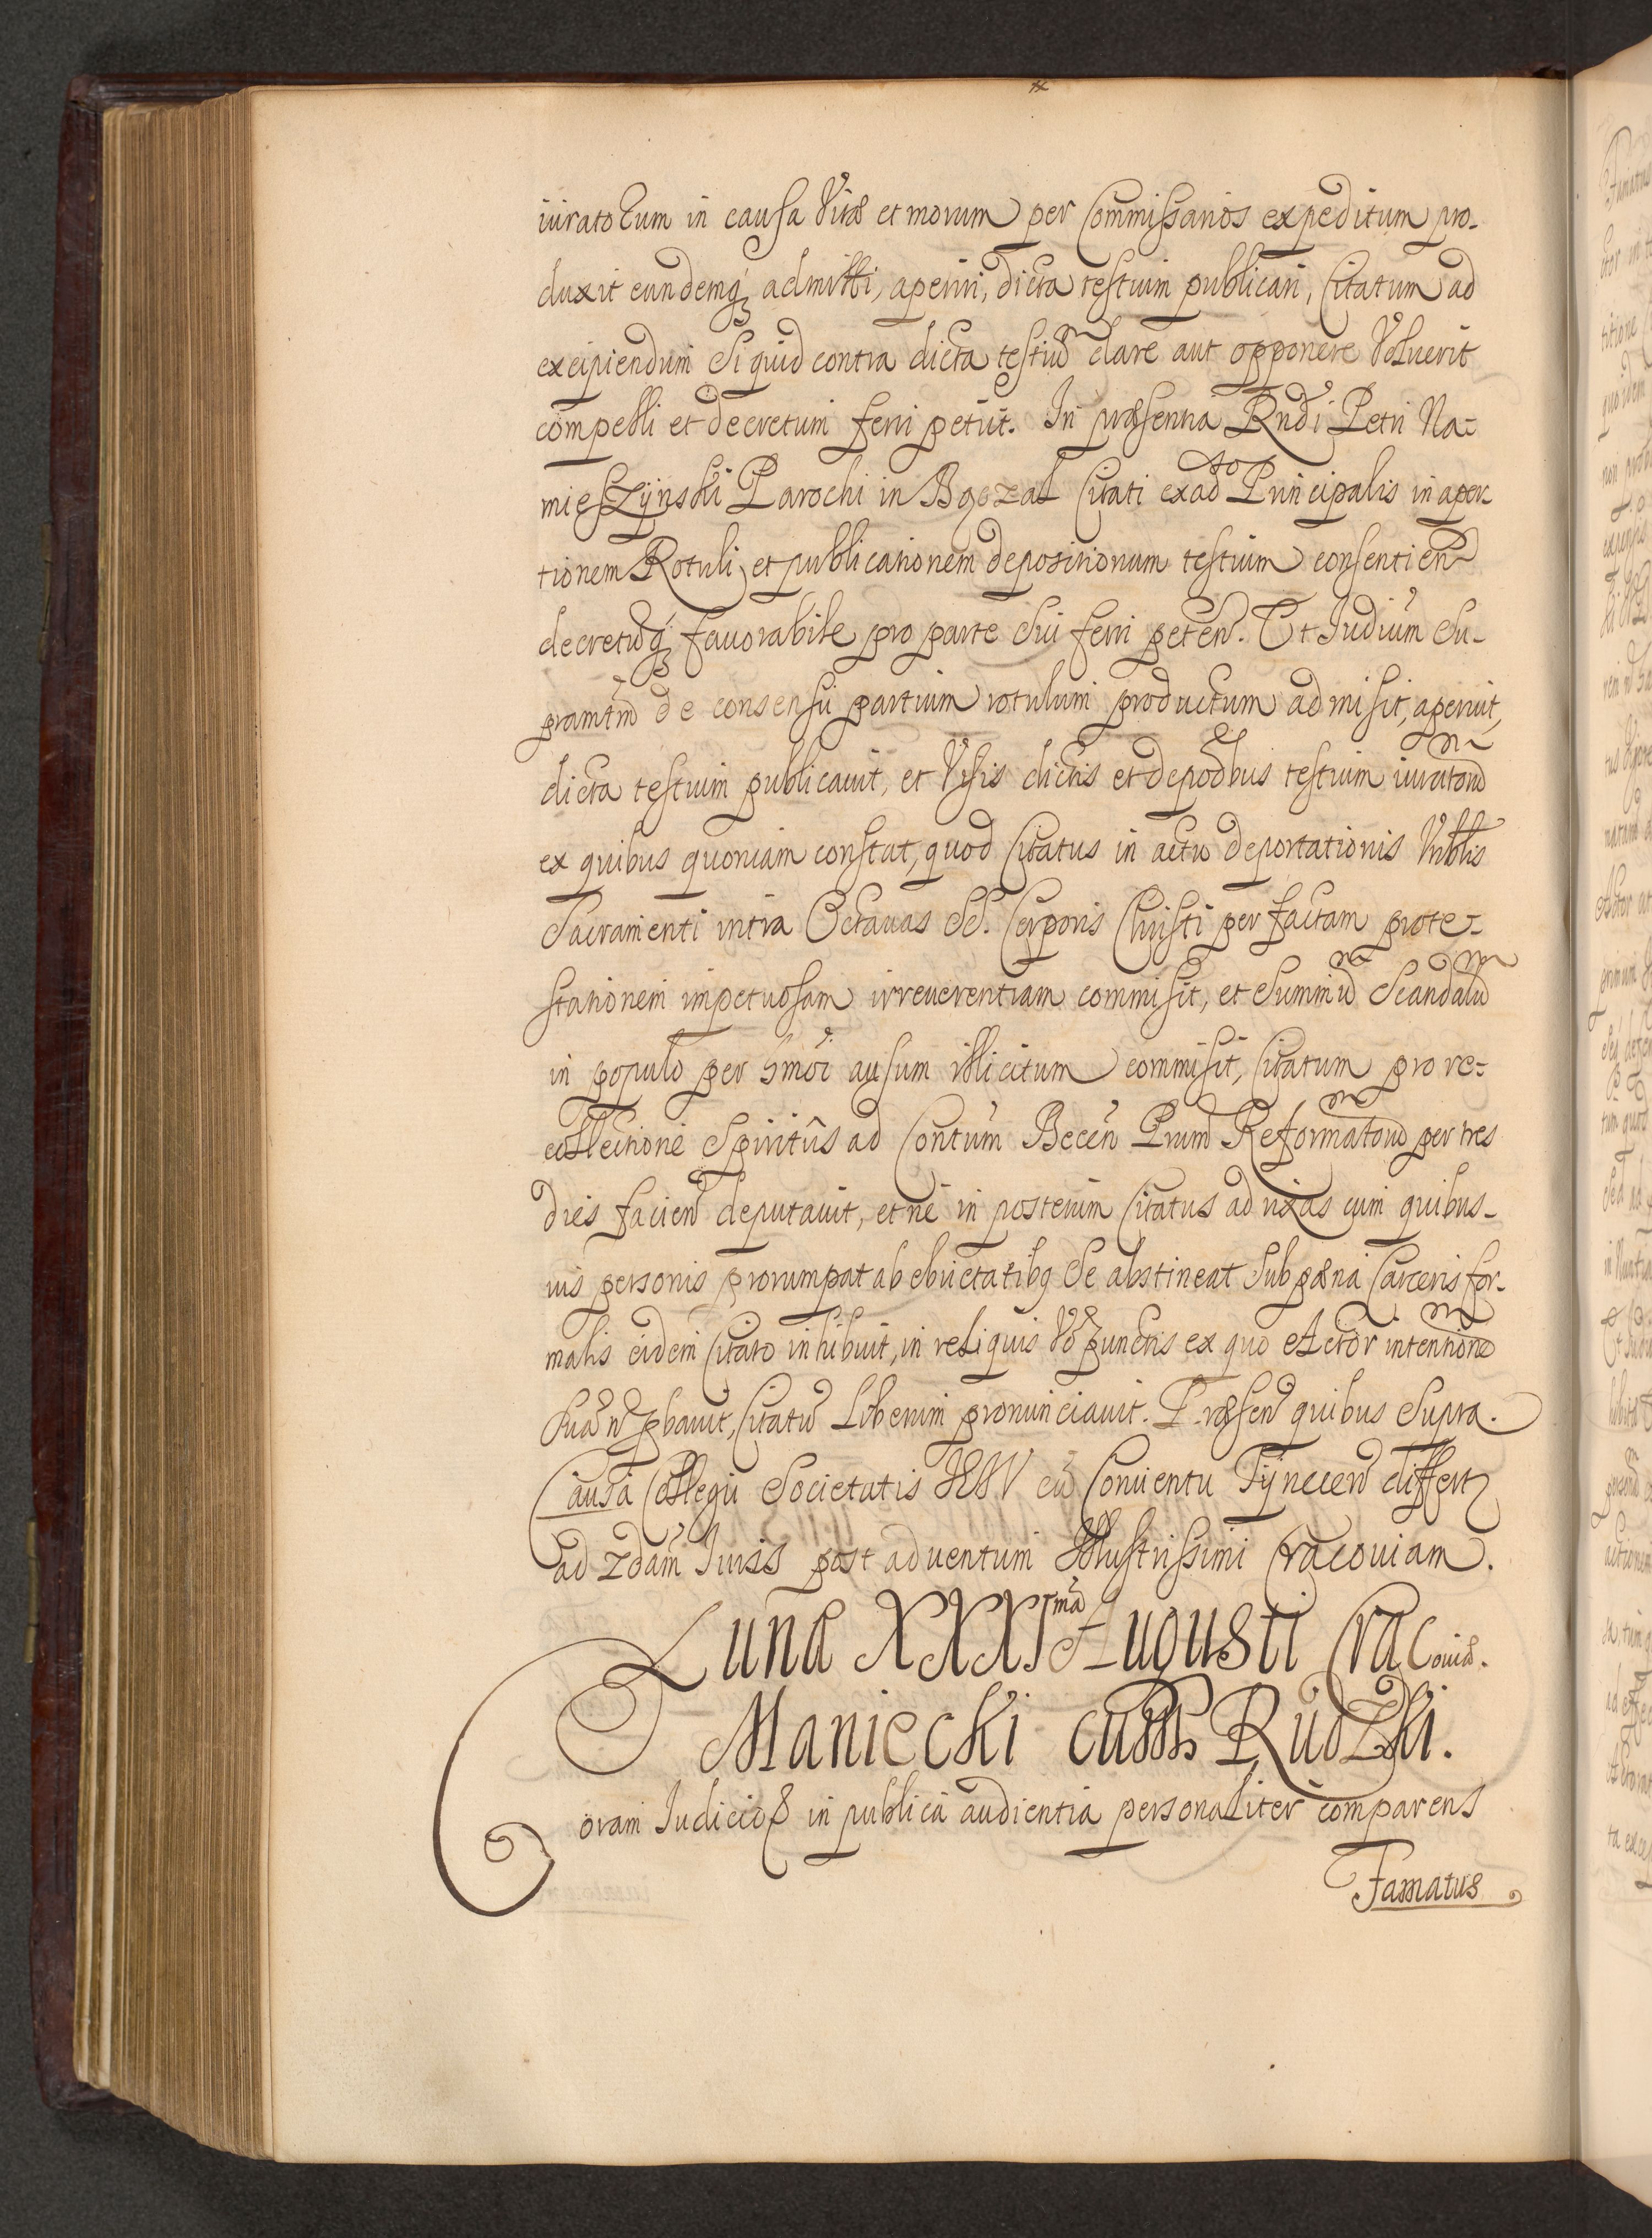 iurato Eum in causa Vitæ et morum per Commissarios expeditum pro-
duxit eundemq admitti, aperiri, dicta testium publicari, Citatum ad
excipiendum Si quid contra dicta testiũ clare aut opponere Voluerit
compelli et decretum ferri petiit. In præsentia Rndi Petri Na-
mieszÿnski Parochi in Bgozal Citati ex ad Principalis in aper-
tionem Rotuli, et publicationem depositionum testium consentien
decretũq favorabile pro parte Sui ferri peten. Et Iudium Su-
pramtm de consensu partium rotulum productum admisit, aperuit,
dicta testium publicauit, et Visis dictis et depōbus testium iuratorũ
ex quibus quoniam constat, quod Citatus in actu deportationis Vnblis
Sacramenti intra Octauas SS. Corporis Christi per factam prote-
stationem impetuosam irreuerentiam commisit, et Summũ Scandalũ
in populo per smōi ausum illicitum commisit, Citatum pro re-
collectione Spiritûs ad Contum Becen Prum Reformatorũ per tres
dies facien deputauit, et ne in posterum Citatus ad rixas cum quibus-
uis personis prorumpat ab ebrietatibq Se abstineat Sub pæna Carceris for-
malis eidem Citato inhibuit, in reliquis Vo punctis ex quo Actor intentionē
Suã ñ pbauit, Citatũ Liberum pronunciauit. Præsen quibus Supra.
Causa Collegii Societatis IESV cũ Conuentu Tÿnecen differt
ad 2dam Iuris post aduentum Illustrissimi Cracouiam.
Luna XXXIma Augusti Cracouiæ.
Maniecki cum Rudzki.
Coram Iudicio &c in publica audientia personaliter comparens
Famatus